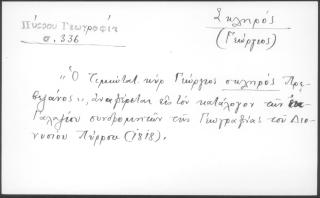 Πύρρου Γεωγραφία
σ. 336
Σκληρός
(Γεώργιος)
"Ὁ Τιμιώτατ. κὺρ Γεώργιος σκληρός Πρε-
βεζάνος", ἀναφέρεται εἰς τὸν κατάλογον τῶν ἐκ
Γαλαζίου συνδρομητῶν τῆς Γεωγραφίας τοῦ Διο-
νυσίου Πύρρου (1818).